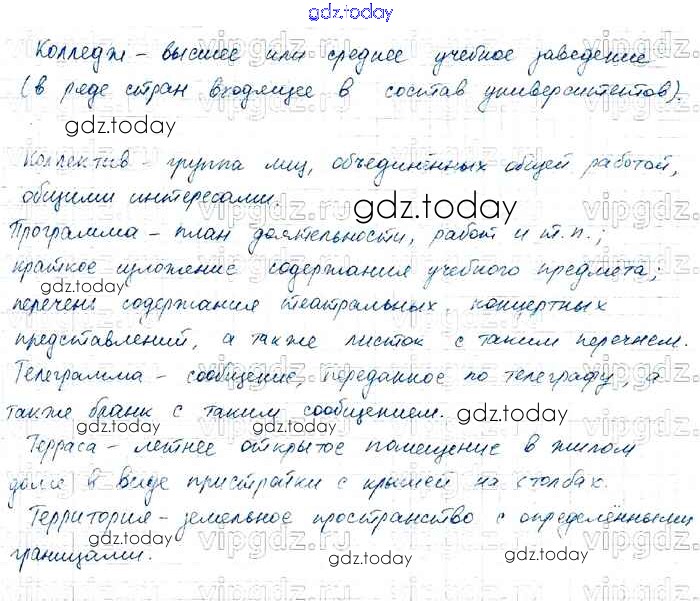 gdz.today
Колледж – высшее или среднее учебное заведение
(в ряде стран входящее в состав университетов).
gdz.today
Коллектив – группа лиц, объединённых общей работой,
общими интересами.
gdz.today
Программа – план деятельности, работ и т.п.;
краткое изложение содержания учебного предмета;
gdz.today
перечень содержания театральных, концертных
представлений, а также листок с таким перечнем.
Телеграмма – сообщение, переданное по телеграфу, а
также бланк с таким сообщением.
gdz.today
gdz.today
Терраса – летнее открытое помещение в жилом
доме в виде пристройки с крышей на столбах.
gdz.today
gdz.today
Территория – земельное пространство с определёнными
границами.
gdz.today
gdz.today
vipgdz.ru